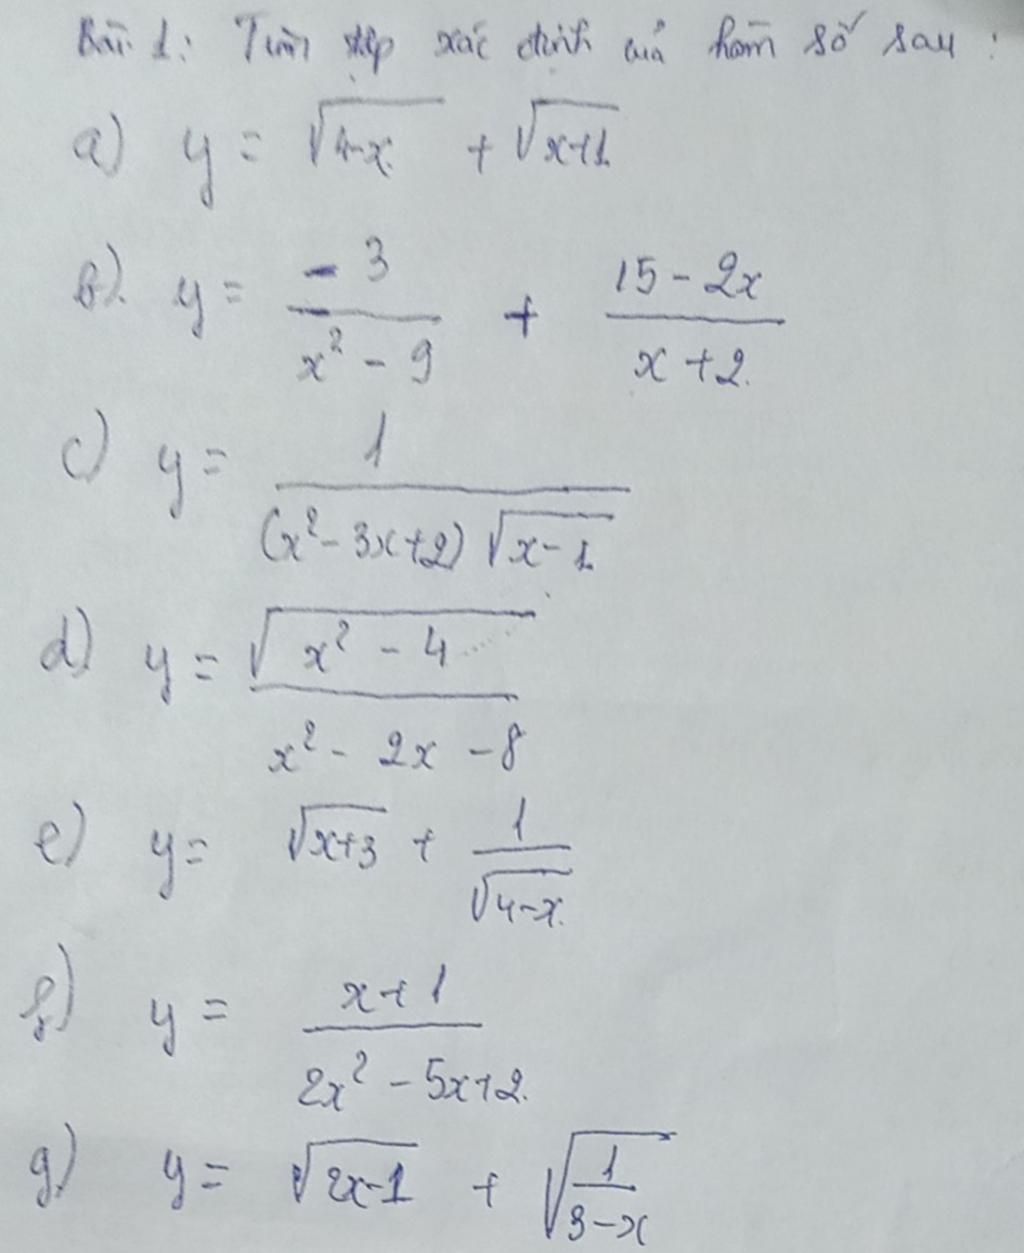 Bài 1: Tìm tập xác định của hàm số sau:
a) y = √(4-x) + √(x+1)
b) y = -3/(x² - 9) + (15 - 2x)/(x + 2)
c) y = 1/((x² - 3x + 2)√(x - 1))
d) y = √(x² - 4)/(x² - 2x - 8)
e) y = √(x+3) + 1/√(4-x)
f) y = (x + 1)/(2x² - 5x + 2)
g) y = √(2x-1) + √(1/(3-x))